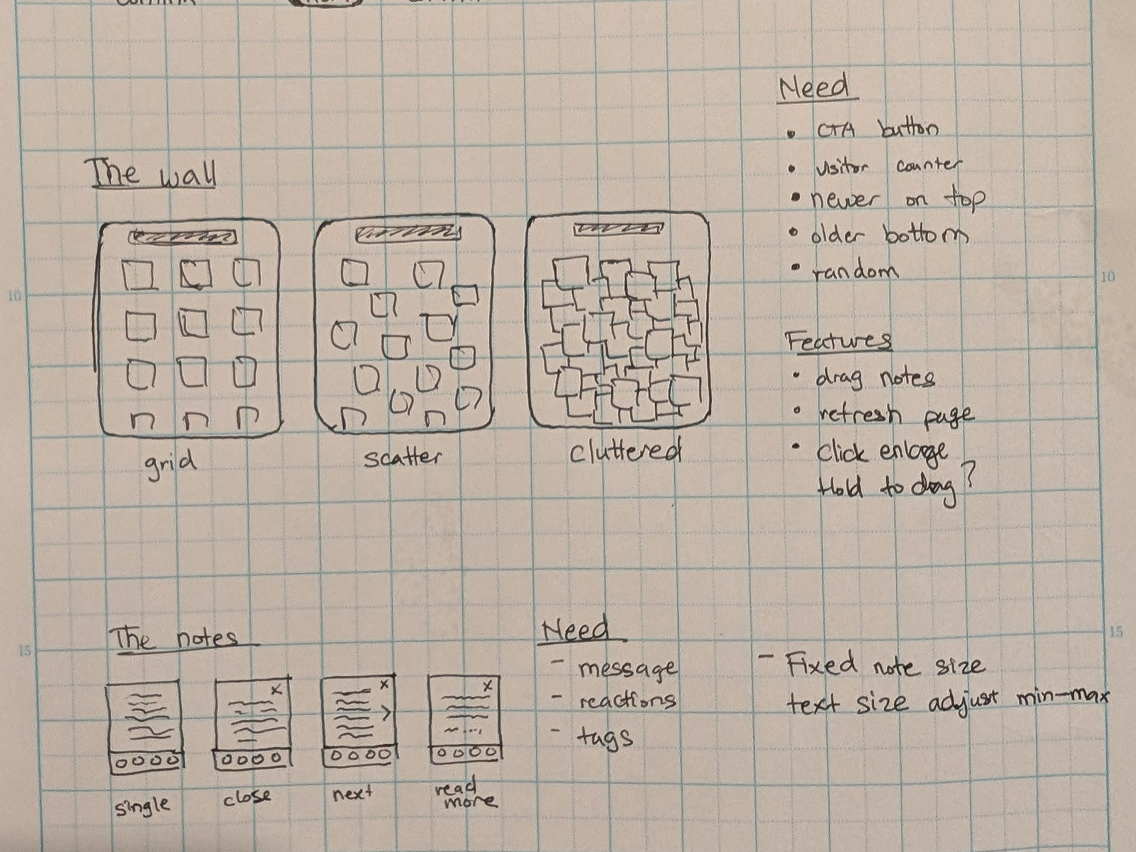 The wall
grid
scatter
cluttered
Need
• CTA button
• visitor counter
• newer on top
• older bottom
• random
Features
• drag notes
• refresh page
• click enlage
Hold to drag?
10
10
15
15
The notes
x
x >
x
single
close
next
read
more
Need
- message
- reactions
- tags
- Fixed note size
text size adjust min-max